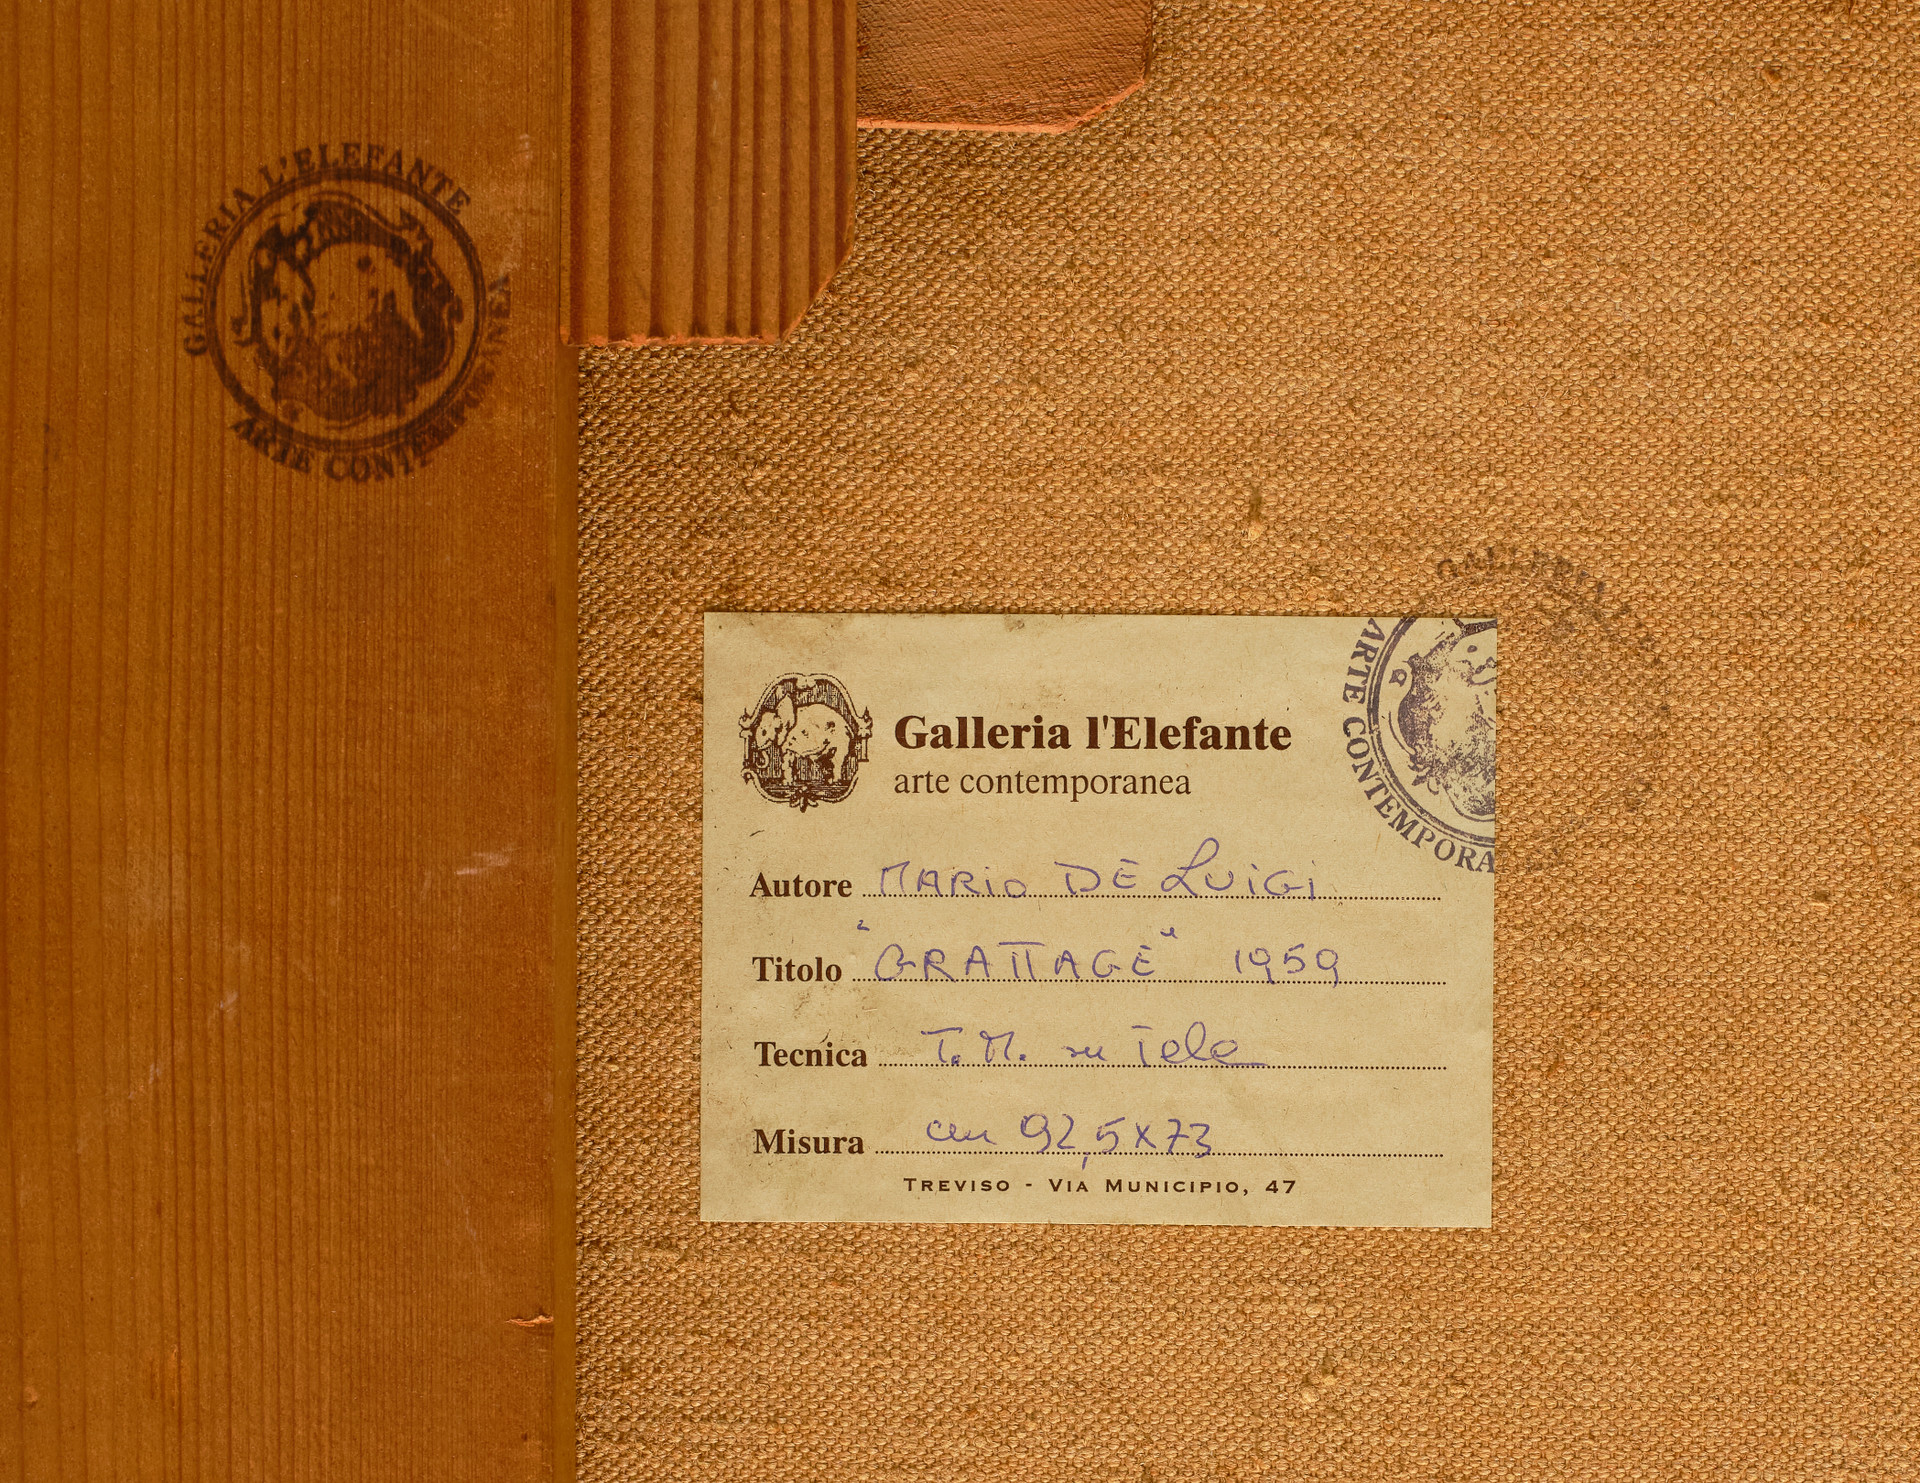 GALLERIA L'ELEFANTE
ARTE CONTEMPORANEA
GALLERIA
ARTE CONTEMPORA
Galleria l'Elefante
arte contemporanea
Autore MARIO DE LUIGI
Titolo "GRATTAGE" 1959
Tecnica T.M. su Tela
Misura cm 92,5x73
TREVISO - VIA MUNICIPIO, 47